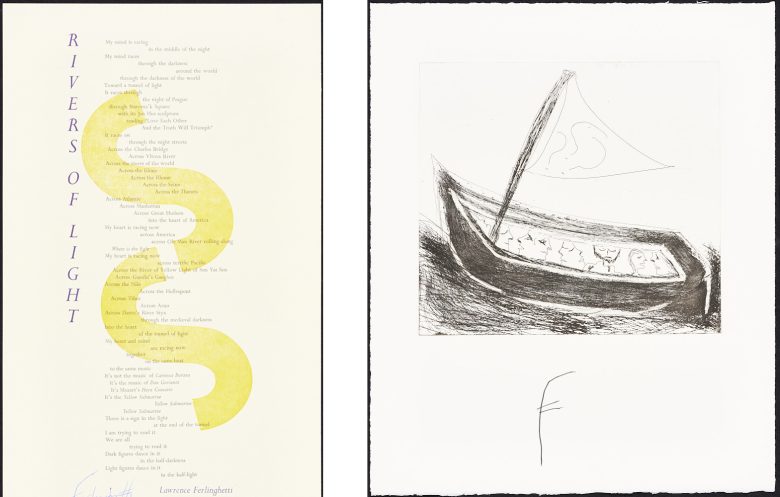 RIVERS OF LIGHT
My mind is racing
in the middle of the night
My mind races
through the darkness
around the world
through the darkness of the world
Toward a tunnel of light
It races through
the night of Prague
through Staromák Square
with its Jan Hus sculpture
reading 'Love Each Other
And the Truth Will Triumph'
It races on
through the night streets
Across the Charles Bridge
Across Vltava River
Across the rivers of the world
Across the
Across the Rhone
Across the Seine
Across the Thames
Across Atlantic
Across Manhattan
Across Great Hudson
into the heart of America
My heart is racing now
across America
across Ole Man River rolling along
Where is the light
My heart is racing now
across terrific Pacific
Across the River of Yellow Light of Sun Yat Sen
Across Gandhi's Ganghes
Across the Nile
Across the Hellespont
Across Tiber
Across Arno
Across Dante's River Styx
through the medieval darkness
Into the heart
of the tunnel of light
My heart and mind
are racing now
together
on the same beat
to the same music
It's not the music of Carmina Burana
It's the music of Don Giovanni
It's Mozart's Horn Concerto
It's the Yellow Submarine
Yellow Submarine
Yellow Submarine
There is a sign in the light
at the end of the tunnel
I am trying to read it
We are all
trying to read it
Dark figures dance in it
in the half-darkness
Light figures dance in it
in the half-light
Lawrence Ferlinghetti
F